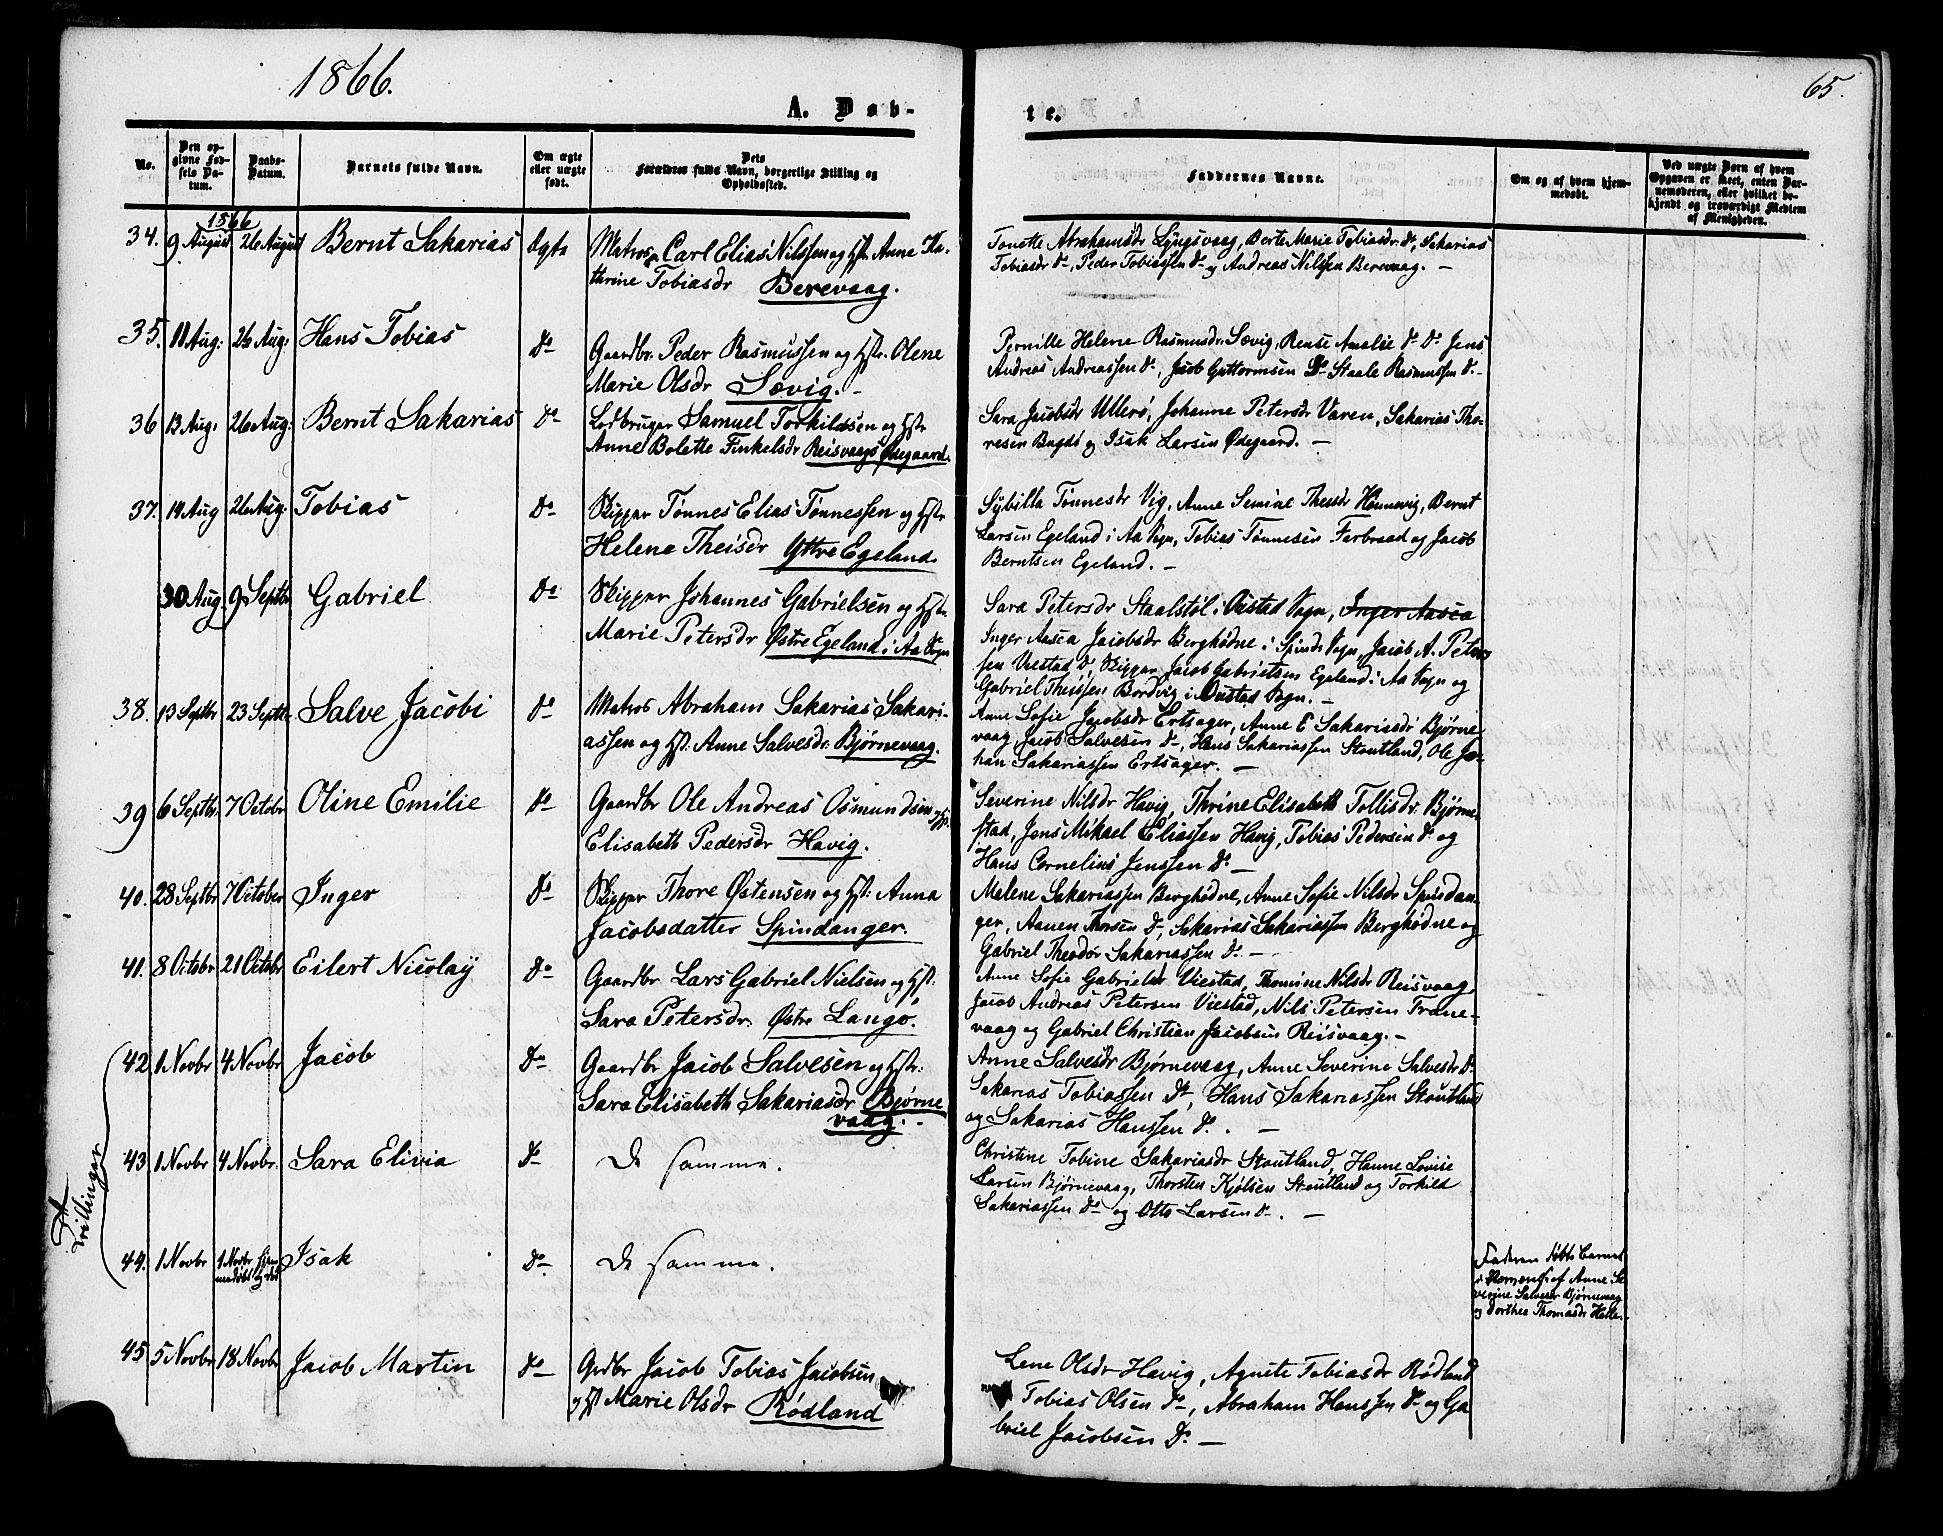 1866.
65.
A. Døb-
te.
No.
Den op-
givne Fød-
sels Da-
tum.
Daabs-
Datum.
Barnets fulde Navn.
Om ægte
eller uægte
født.
Dets
Forældres fulde Navn, borgerlige Stilling og
Opholdssted.
Faddernes Navne.
Om og af hvem hjem-
medøbt.
Ved uægte Børn af hvem
Opgaven er skeet, enten Bar-
nemoderen, eller hvilket be-
kjendt og troværdigt Medlem
af Menigheden.
1866
34. 9 August 26 August Bernt Sakarias Ægte
Matros Carl Elias Nilssen og Hstr. Anne Ka-
thrine Tobiasdr Berevaag.
Tonette Abrahamsdr Lyngsvaag, Berte Marie Tobiasdr. do, Sakarias
Tobiasdr do, Peder Tobiassen do og Andreas Nilssen Berevaag. —
35. 11 Aug: 26 Aug: Hans Tobias do
Gaardbr. Peder Rasmussen og Hstr. Olene
Marie Olsdr Sævig. -
Pernille Helene Rasmusdr. Sævig, Rense Amalie do Do Jens
Andreas Andreassen do, Jacob Guttormsen Do Staale Rasmussen do. -
36 13 Aug. 26 Aug: Bernt Sakarias do
Lodbruger Samuel Torkildsen og Hstr
Anne Bolette Finkelsdr Reisvaags Ødegaard.
Sara Jacobsdr Ullerø, Johanne Petersdr Varen, Sakarias Tho-
resen Bugdø og Isak Larsen Ødegaard. —
37. 19 Aug 26 Aug. Tobias Do
Skipper Tønnes Elias Tønnessen og Hstr
Helene Theisdr Yttre Egeland.
Sybilla Tønnesdr Vig, Anne Semine Theisdr Hannevig, Bernt
Larsen Egeland i Aa Sogn, Tobias Tønnesen Farbrød og Jacob
Berntsen Egeland. —
30 Aug. 9 Septbr Gabriel Do
Skipper Johannes Gabrielsen og Hstr.
Marie Petersdr Østre Egeland i Aa Sogn
Sara Petersdr Staalstøl i Oustad Sogn, Inger Aasea
Inger Aasea Jacobsdr Berghødne i Spinds Sogn, Jacob A. Peter-
sen Viestad do, Skipper Jacob Gabrielsen Egeland i Aa Sogn og
Gabriel Theissen Bordvig i Oustad Sogn. —
38. 13 Septbr 23 Septbr. Salve Jacobi Do
Matros Abraham Sakarias Sakari-
assen og Hst. Anne Salvesdr. Bjørnevaag.
Anne Sofie Jacobsdr Ertsager, Anne E Sakariasdr Bjørne
vaag, Jacob Salvesen do, Hans Sakariassen Stoutland, Ole Jo-
han Sakariassen Ertsager. —
39 6 Septbr. 7 Octobr Oline Emilie do
Gaardbr Ole Andreas Osmundsen og Hst.
Elisabeth Pedersdr Havig.
Severine Nilsdr Havig, Thrine Elisabeth Tollisdr. Bjørne-
stad, Jens Mikael Eliassen Havig, Tobias Pedersen do og
Hans Cornelius Jenssen do —
40. 28 Septbr 7 October Inger Do
Skipper Thore Østensen og Hst: Anna
Jacobsdatter Spindanger.
Malene Sakariassen Berghødne, Anne Sofie Nilsdr Spindan-
ger, Aanen Thorsen Do, Sakarias Sakariassen Berghødne og
Gabriel Theodor Sakariassen do. —
41. 8 Octobr 21 Octobr Eilert Nicolay do
Gaardbr Lars Gabriel Nielsen og Hst:
Sara Petersdr. Østre Langø.
Anne Sofie Gabrielsdr Viestad, Thomine Nilsdr Reisvaag,
Jacob Andreas Petersen Viestad, Nils Petersen Trane-
vaag og Gabriel Christian Jacobsen Reisvaag. —
Trillinger
42 1 Novbr 4 Novbr Jacob Do
Gaardbr Jacob Salvesen og Hstr:
Sara Elisabeth Sakariasdr Bjørne
vaag. -
Anne Salvesdr Bjørnevaag, Anne Severine Salvesdr do
Sakarias Tobiassen Do, Hans Sakariassen Stoutland
og Sakarias Hanssen do. —
43 1 Novbr 4 Novbr. Sara Elivia do
De samme.
Christine Tobine Sakariasdr Stoutland, Hanne Lovise
Larsen Bjørnevaag, Thorsten Kjølsen Stoutland og Torkild
Sakariassen do og Otto Larsen do. —
44. 1 Novbr 1 Novbr hjem
medøbt og død Isak Do
De samme.
Faderen døbte Barnet
i Nærværelse af Anne Se
verine Salvesdr Bjørnevaag
og Dorthea Thomasdr Halle.
45 5 Novbr 18 Novbr Jacob Martin do
Grdbr Jacob Tobias Jacobsen
og Hst Marie Olsdr Rødland
Lene Olsdr Havig, Agnete Tobiasdr Rødland
Tobias Olsen do, Abraham Hanssen do og Ga
briel Jacobsen do. —